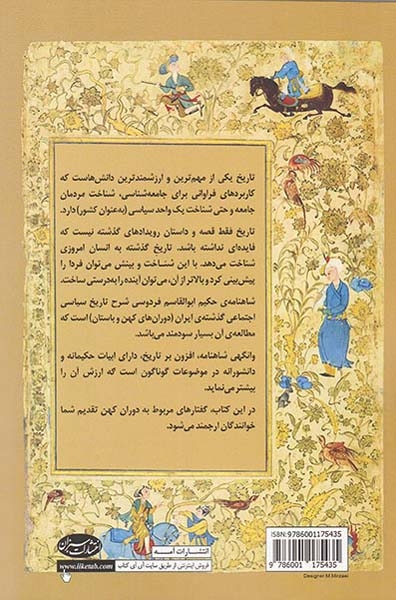 تاریخ یکی از مهم‌ترین و ارزشمندترین دانش‌هاست که
کاربردهای فراوانی برای جامعه‌شناسی، شناخت مردمان
جامعه و حتی شناخت یک واحد سیاسی (به‌عنوان کشور) دارد.
تاریخ فقط قصه و داستان رویدادهای گذشته نیست که
فایده‌ای نداشته باشد. تاریخ گذشته به انسان امروزی
شناخت می‌دهد. با این شناخت و بینش می‌توان فردا را
پیش‌بینی کرد و بالاتر از آن، می‌توان آینده را به‌درستی ساخت.
شاهنامه‌ی حکیم ابوالقاسم فردوسی شرح تاریخ سیاسی
اجتماعی گذشته‌ی ایران (دوران‌های کهن و باستان) است که
مطالعه‌ی آن بسیار سودمند می‌باشد.
وانگهی شاهنامه، افزون بر تاریخ، دارای ابیات حکیمانه و
دانشورانه در موضوعات گوناگون است که ارزش آن را
بیشتر می‌نماید.
در این کتاب، گفتارهای مربوط به دوران کهن تقدیم شما
خوانندگان ارجمند می‌شود.
ISBN: 9786001175435
9 786001 175435
Designer M.Mirzaei
انتشارات آمه
فروش اینترنتی از طریق سایت آی آی کتاب
www.iiketab.com